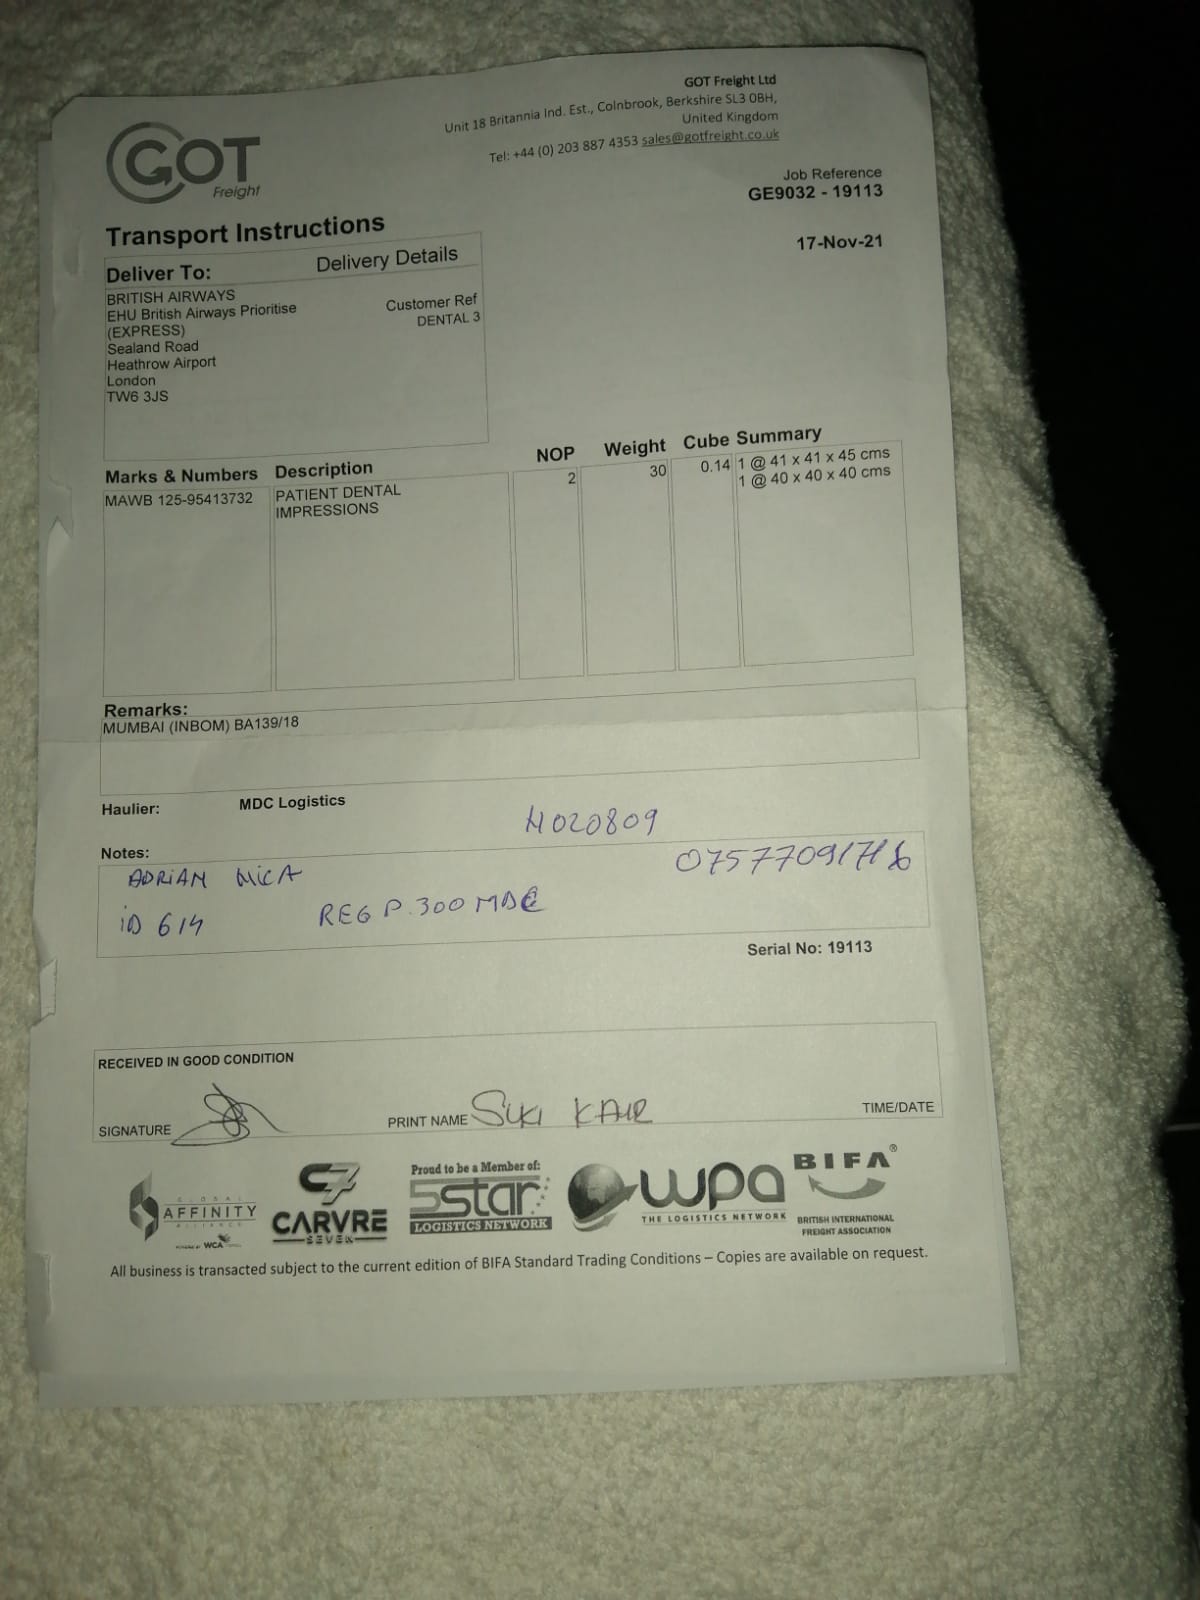 GOT Freight Ltd
Unit 18 Britannia Ind. Est., Colnbrook, Berkshire SL3 0BH,
United Kingdom
Tel: +44 (0) 203 887 4353 sales@gotfreight.co.uk
GOT
Freight
Job Reference
GE9032 - 19113
Transport Instructions
17-Nov-21
Deliver To: Delivery Details
BRITISH AIRWAYS
EHU British Airways Prioritise
(EXPRESS)
Sealand Road
Heathrow Airport
London
TW6 3JS
Customer Ref
DENTAL 3
Marks & Numbers Description NOP Weight Cube Summary
MAWB 125-95413732 PATIENT DENTAL 2 30 0.14 1 @ 41 x 41 x 45 cms
IMPRESSIONS 1 @ 40 x 40 x 40 cms
Remarks:
MUMBAI (INBOM) BA139/18
Haulier: MDC Logistics
H020809
Notes:
ADRIAN MICA
iD 614 REG P.300 MDC
Serial No: 19113
RECEIVED IN GOOD CONDITION
SIGNATURE PRINT NAME SUKI KAUR TIME/DATE
GLOBAL
AFFINITY
ALLIANCE
POWERED BY WCA
C7
CARVRE
SEVEN
Proud to be a Member of:
5star
LOGISTICS NETWORK
wpa
THE LOGISTICS NETWORK
BIFA®
BRITISH INTERNATIONAL
FREIGHT ASSOCIATION
All business is transacted subject to the current edition of BIFA Standard Trading Conditions – Copies are available on request.